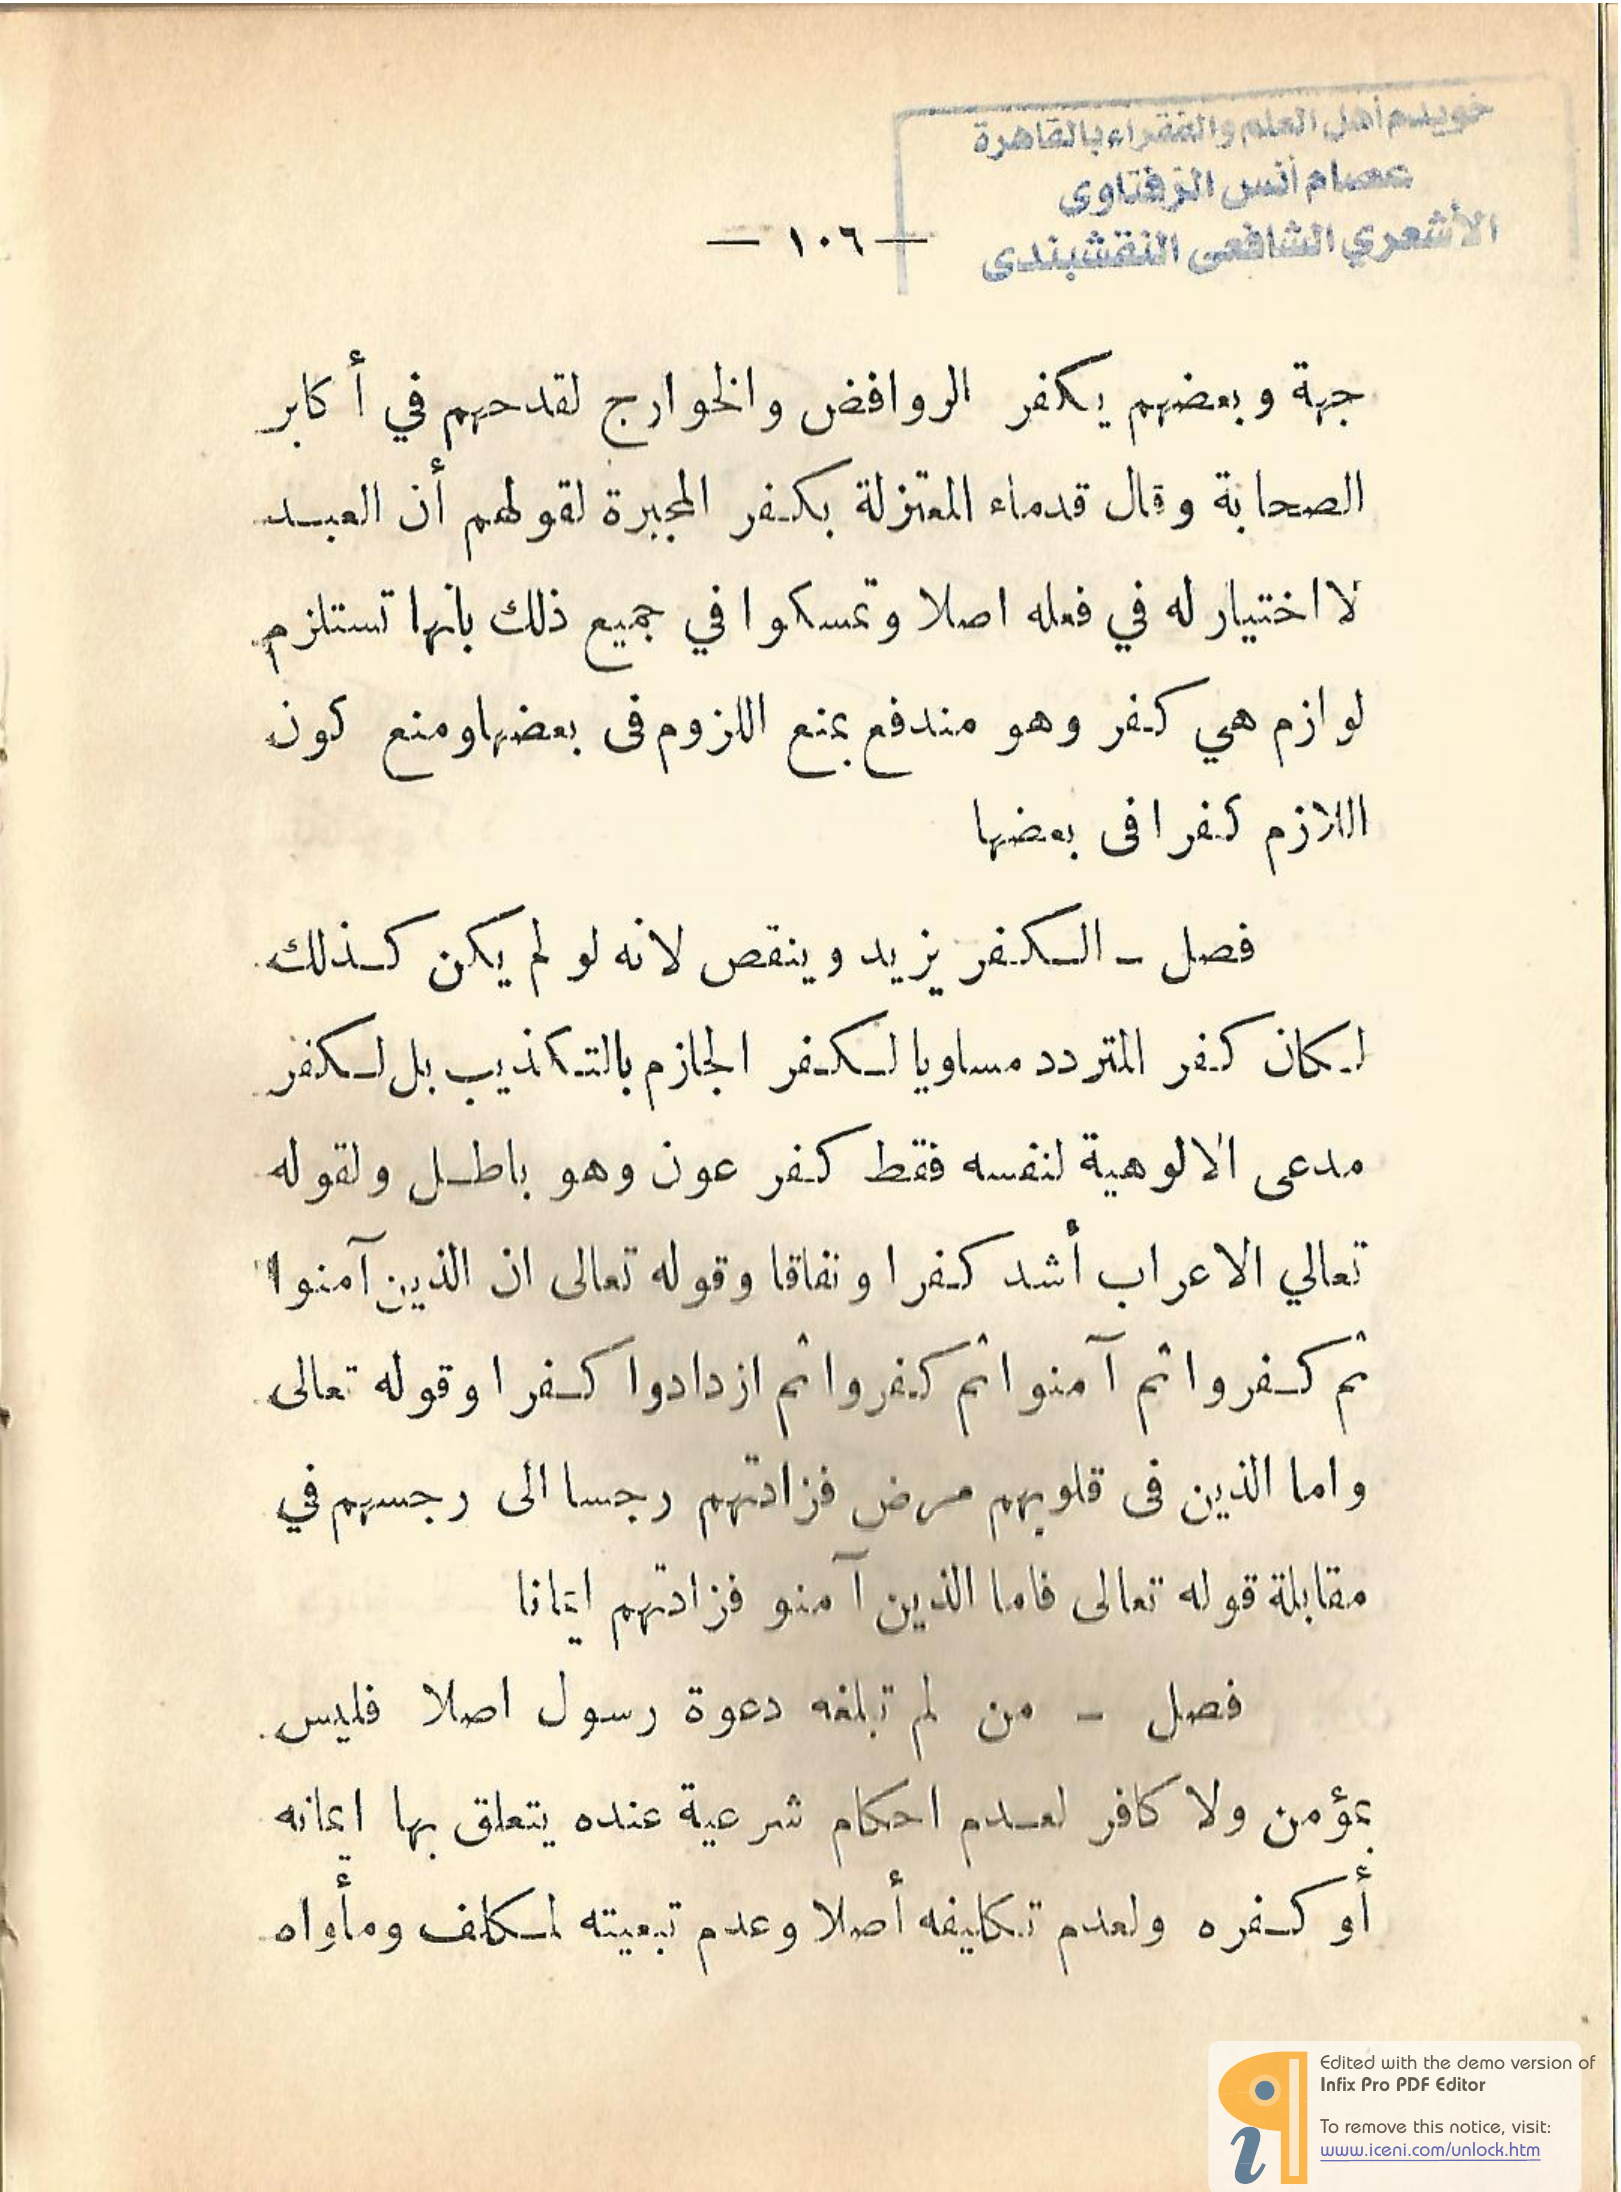 خويدم أهل العلم والفقراء بالقاهرة
عصام أنس الزفتاوى
الأشعري الشافعى النقشبندى
— ١٠٦ —
جهة وبعضهم يكفر الروافض والخوارج لقدحهم في أكابر
الصحابة وقال قدماء المعتزلة بكفر المجبرة لقولهم أن العبد
لا اختيار له في فعله اصلا وتمسكوا في جميع ذلك بانها تستلزم
لوازم هي كفر وهو مندفع بمنع اللزوم فى بعضها ومنع كون
اللازم كفرا فى بعضها
فصل ـ الكفر يزيد وينقص لانه لو لم يكن كذلك
لكان كفر المتردد مساويا لكفر الجازم بالتكذيب بل لكفر
مدعى الالوهية لنفسه فقط كفر عون وهو باطل ولقوله
تعالي الاعراب أشد كفرا ونفاقا وقوله تعالى ان الذين آمنوا
ثم كفروا ثم آمنوا ثم كفروا ثم ازدادوا كفرا وقوله تعالى
واما الذين فى قلوبهم مرض فزادتهم رجسا الى رجسهم في
مقابلة قوله تعالى فاما الذين آمنو فزادتهم ايمانا
فصل ـ من لم تبلغه دعوة رسول اصلا فليس
بمؤمن ولا كافر لعدم احكام شرعية عنده يتعلق بها ايمانه
أو كفره ولعدم تكليفه أصلا وعدم تبعيته لمكلف ومأواه
Edited with the demo version of
Infix Pro PDF Editor
To remove this notice, visit:
www.iceni.com/unlock.htm